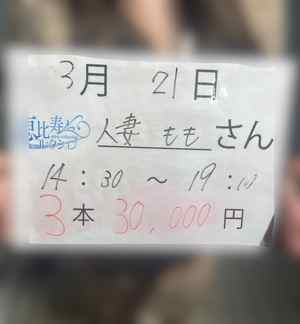 3月 21日
恵比寿 人妻 もも さん
14:30 ～ 19:10
3本 30,000円